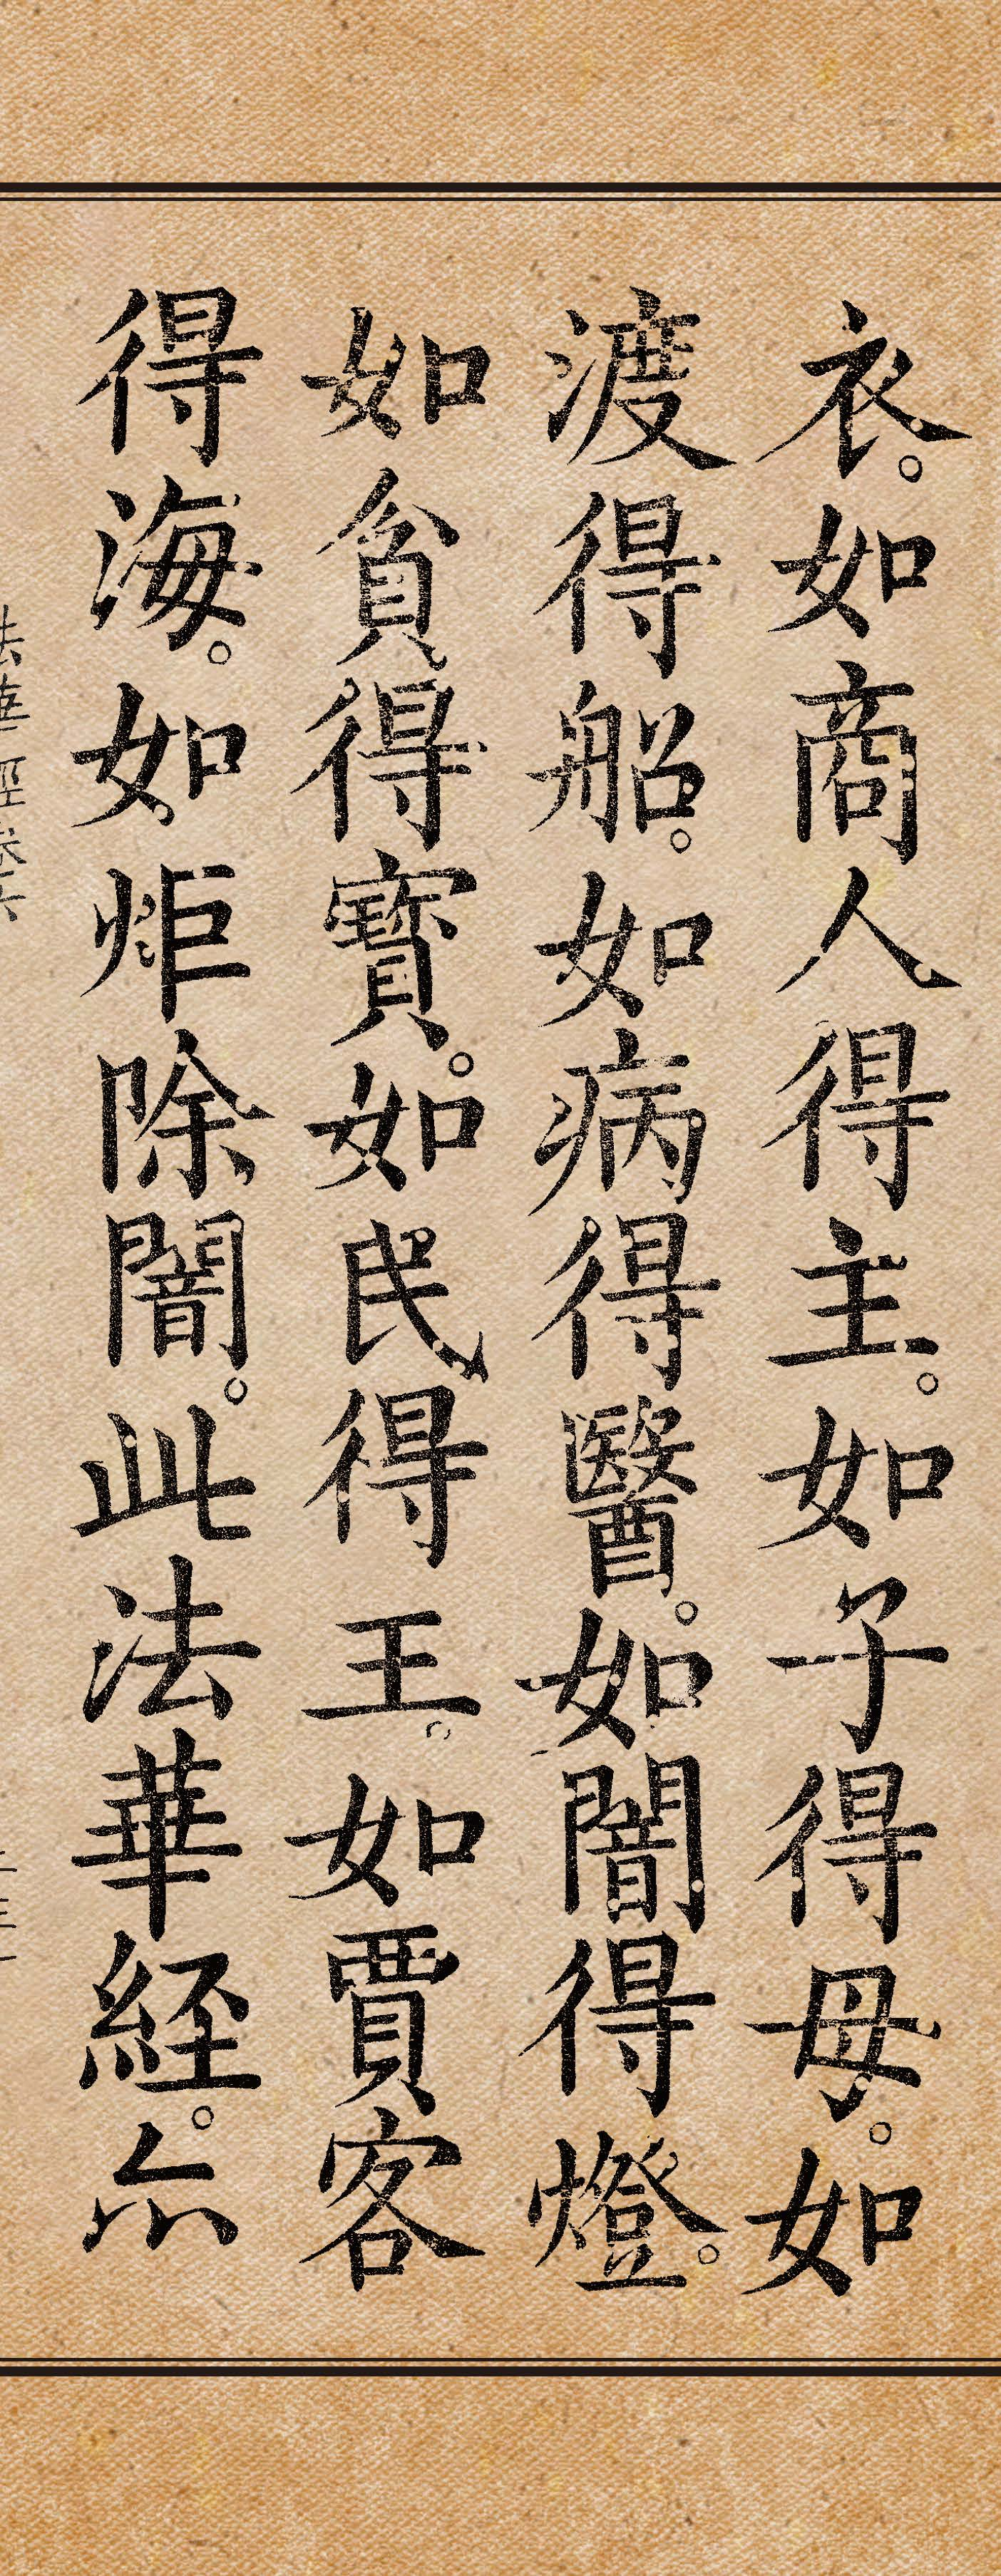 衣。如商人得主。如子得母。如
渡得船。如病得醫。如闇得燈。
如貧得寶。如民得王。如賈客
得海。如炬除闇。此法華経。亦